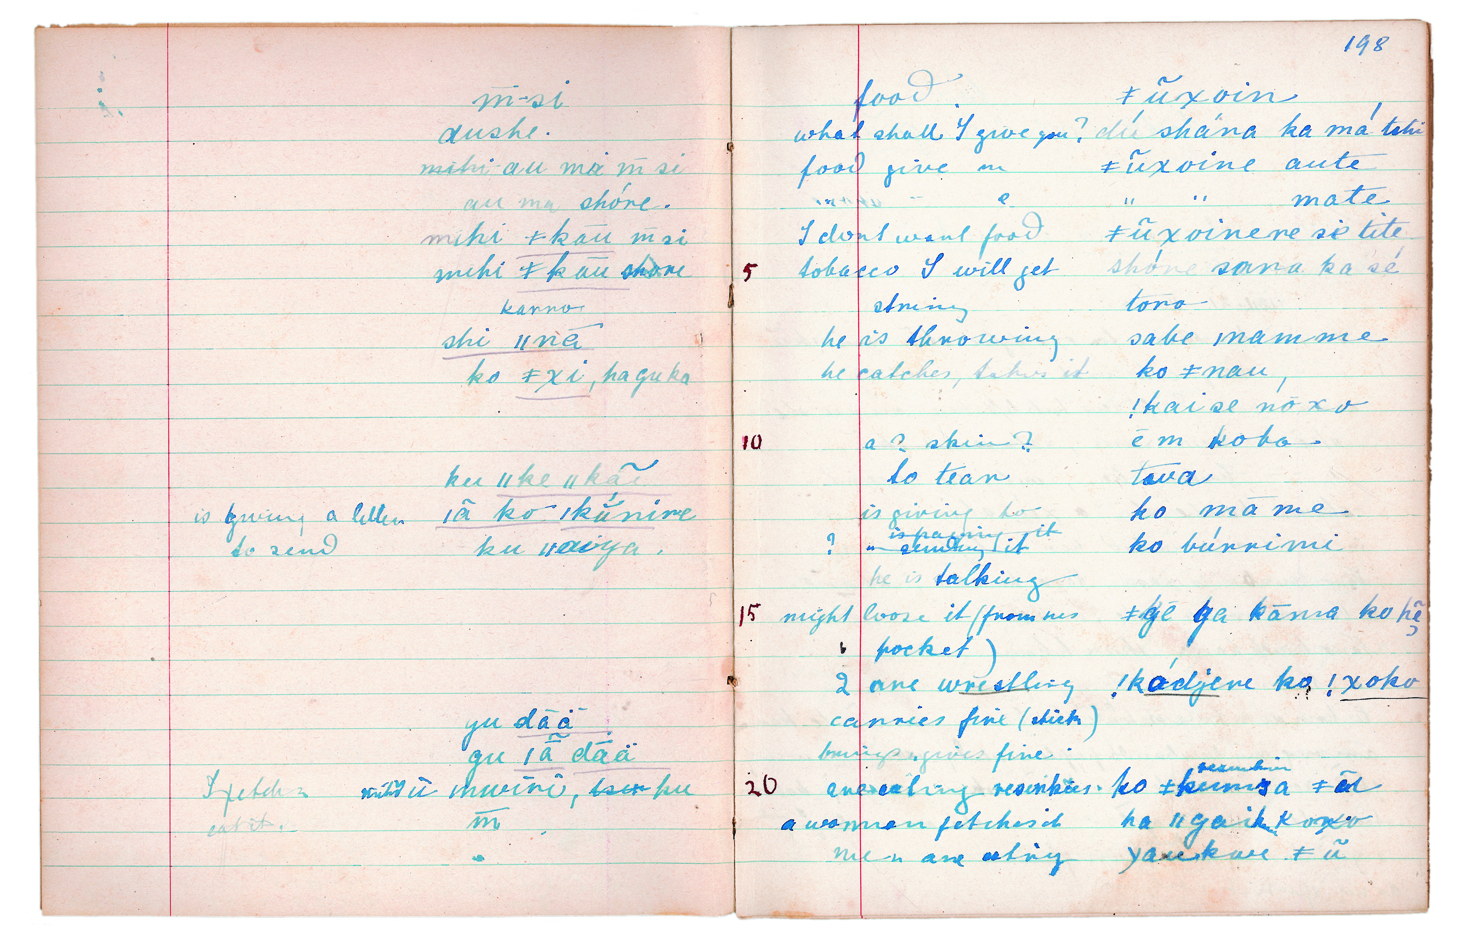 m̄-si
dushe.
mihi au má m̄ si
au ma shóre.
mihi ǂkāu m̄ si
mihi ǂkāu shore
karro
shi ǁnā
ko ǂxi, haguka
ku ǁke ǁkãi
is giving a letter ǀã ko ǀkúnire
to send ku ǁaiya.
gu dāä
gu ǀã dāä
I fetch ū ǀnwiri, ku
eat it. m̄
198
food. ǂũxoin
what shall I give you? dú shána ka má tshi
food give m ǂũxoine aute
" " mate
I dont want food ǂũxoinere si tite
5 tobacco I will get shóre sana ka sé
string toro
he is throwing sabe ǀnamme
he catches, takes it ko ǂnau,
!kaise nōxo
10 a? skin? ēm koba.
to tear tova
is giving to ko māme
is paying it
? " sending it ko búrrimi
he is talking
15 might loose it (from his ǂgē ga kāma ko hē
pocket)
2 are wrestling !kádjere ko !xoko
carries fire (stick)
brings, gives fire.
20 are eating resinkies. ko ǂkumsa ǂū
a woman fetches it ha ǁgaik koxo
men are eating yaukwe ǂũ